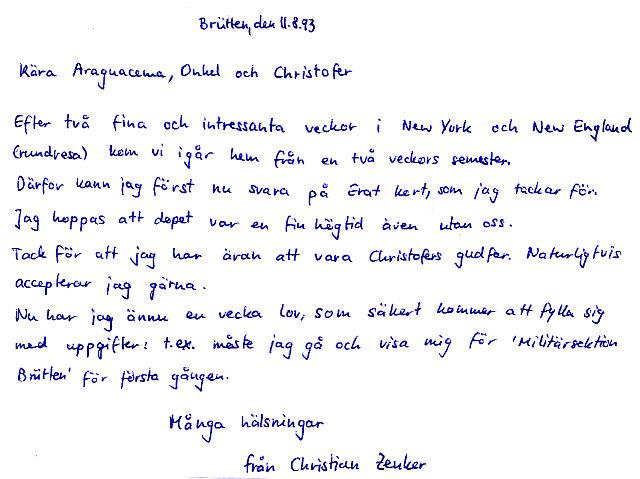 Brütten, den 11.8.93
Kära Araguacema, Onkel och Christofer
Efter två fina och intressanta veckor i New York och New England
(rundresa) kom vi igår hem från en två veckors semester.
Därfor kann jag först nu svara på Erat kort, som jag tackar för.
Jag hoppas att dopet var en fin högtid även utan oss.
Tack för att jag har äran att vara Christofers gudfar. Naturligtvis
accepterar jag gärna.
Nu har jag ännu en vecka lov, som säkert kommer att fylla sig
med uppgifter: t.ex. måste jag gå och visa mig för 'Militärsektion
Brütten' för första gången.
Många hälsningar
från Christian Zenker